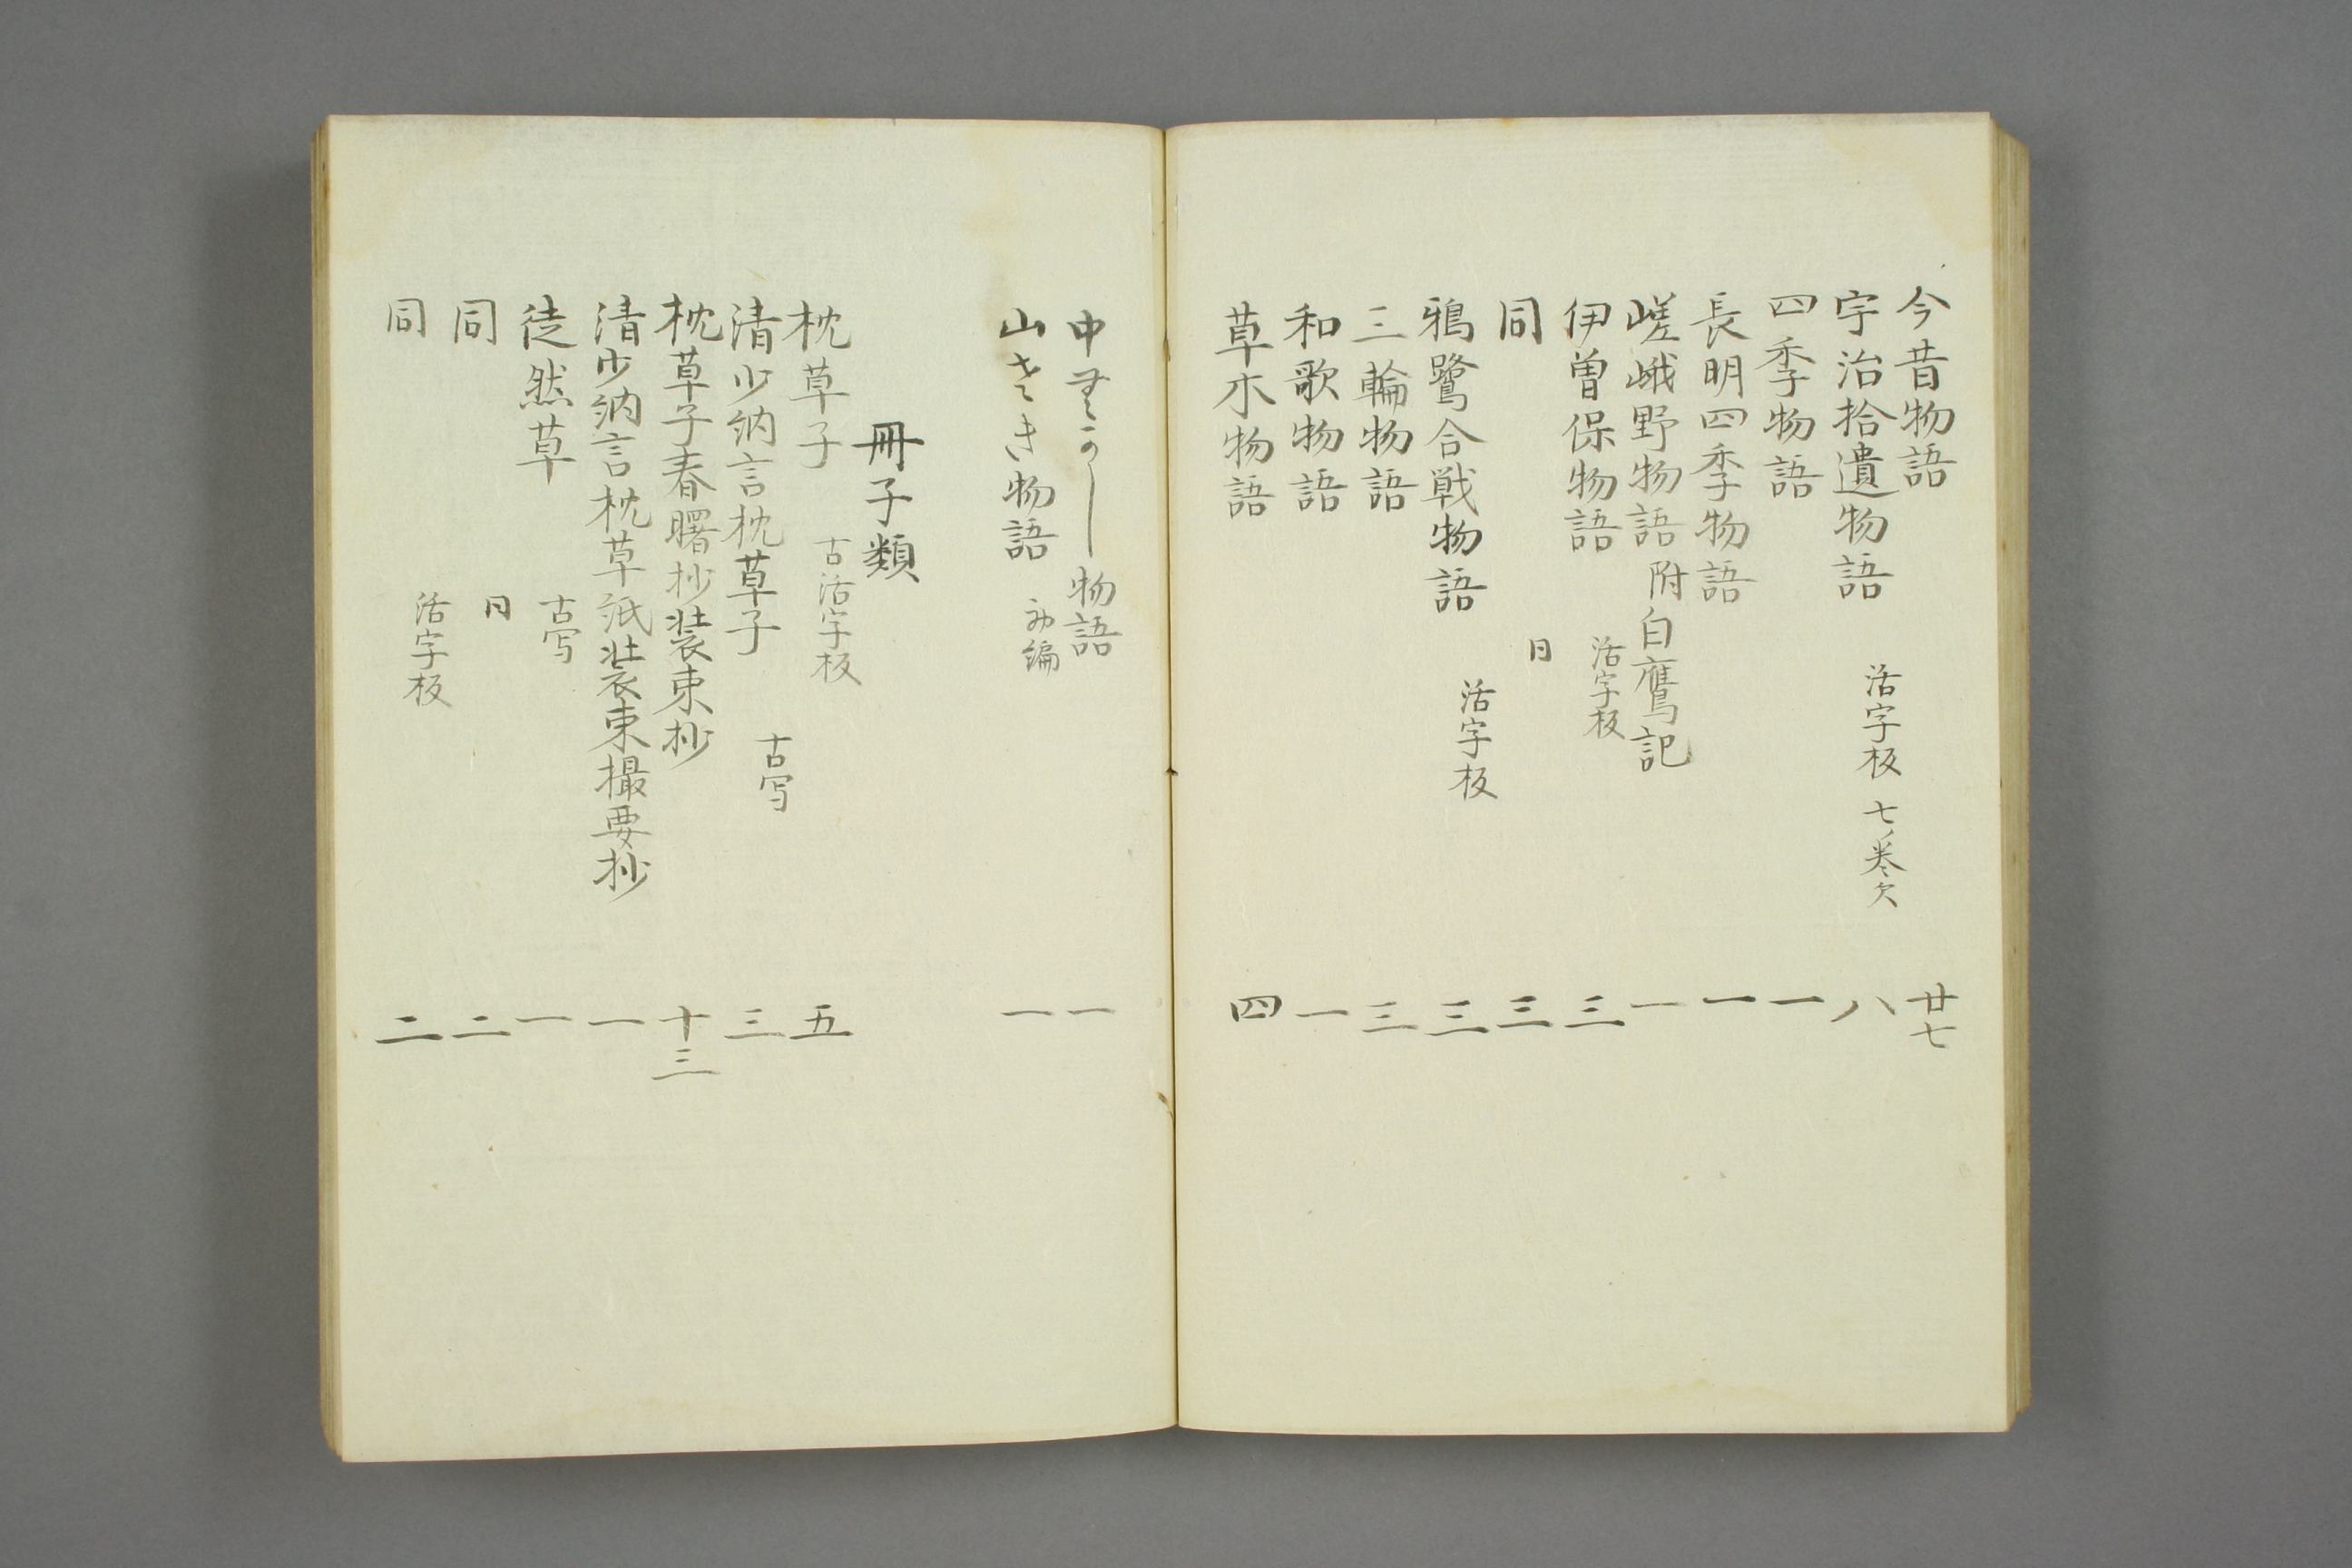 今昔物語 廿七
宇治拾遺物語 活字板 七ノ巻欠 八
四季物語 一
長明四季物語 一
嵯峨野物語附白鷹記 一
伊曽保物語 活字板 三
同 日 三
鴉鷺合戦物語 活字板 三
三輪物語 三
和歌物語 一
草木物語 四
中むかし物語 一
山さき物語 初編 一
冊子類
枕草子 古活字板 五
清少納言枕草子 古写 三
枕草子春曙抄装束抄 十三
清少納言枕草紙装束撮要抄 一
徒然草 古写 一
同 日 二
同 活字板 二